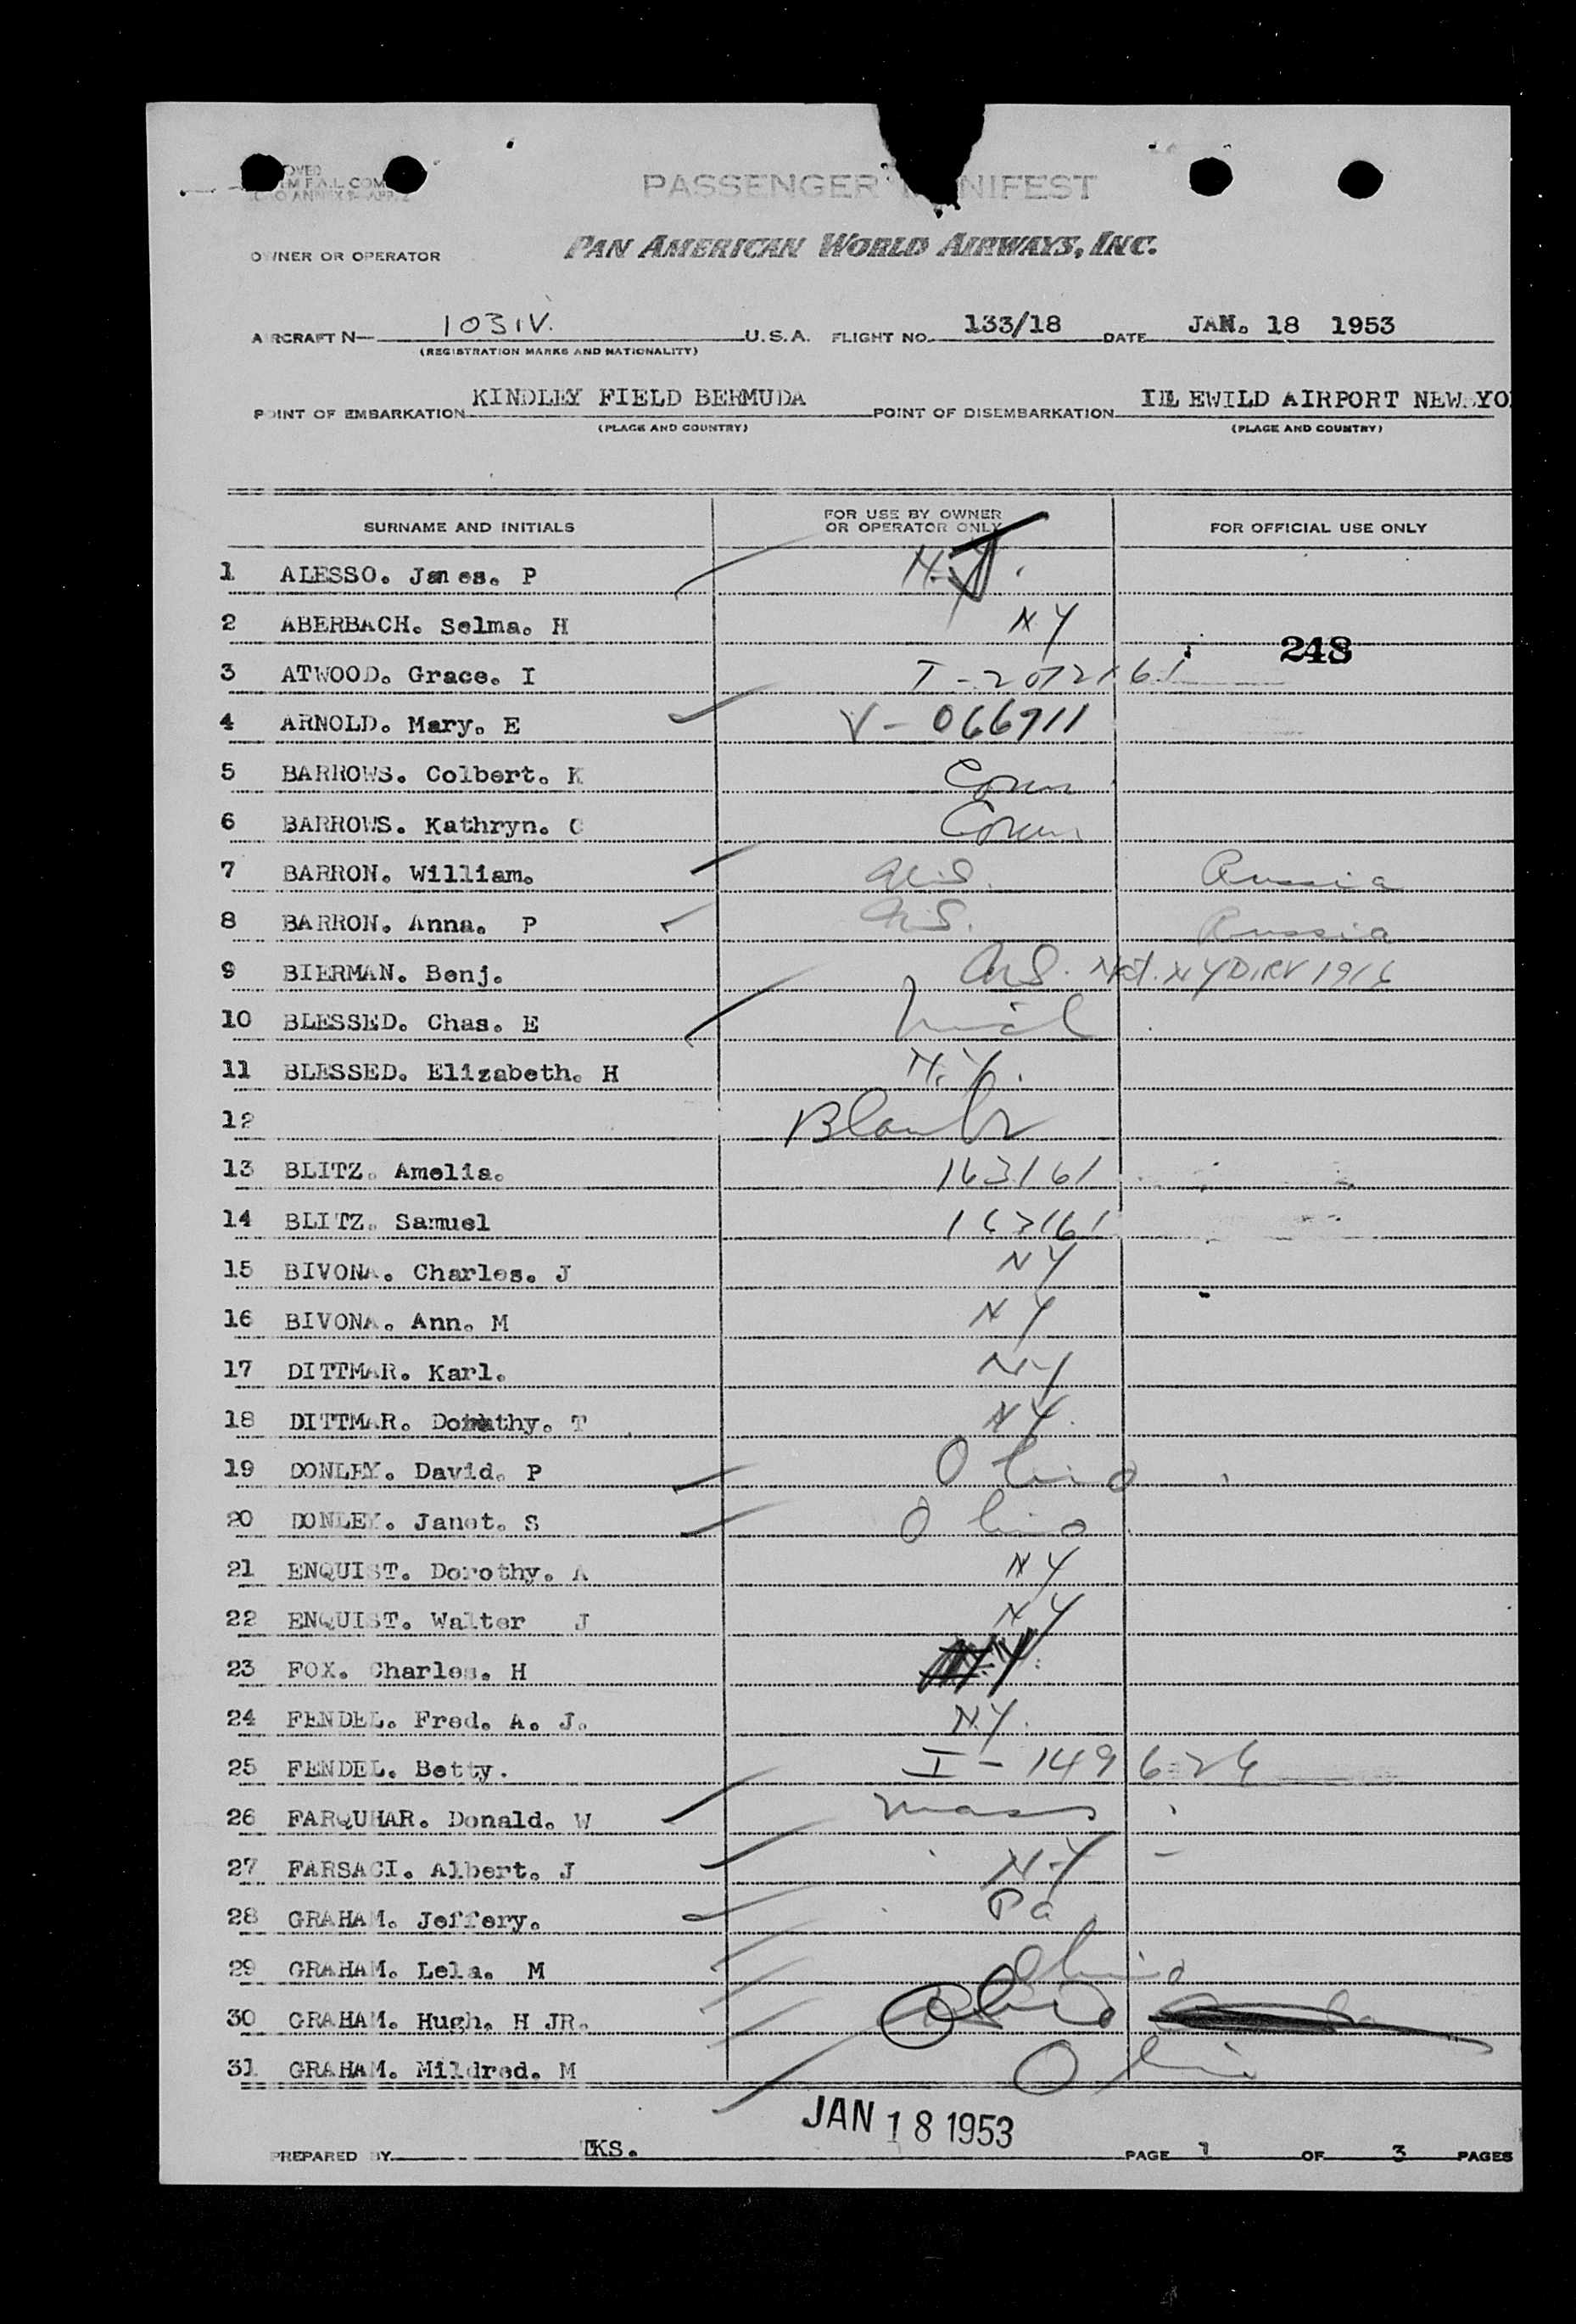 PASSENGER NIFEST
OWNER OR OPERATOR PAN AMERICAN WORLD AIRWAYS, INC.
AIRCRAFT N— 1031V. U.S.A. FLIGHT NO. 133/18 DATE JAN. 18 1953
(REGISTRATION MARKS AND NATIONALITY)
POINT OF EMBARKATION KINDLEY FIELD BERMUDA POINT OF DISEMBARKATION EWILD AIRPORT NEW YO
(PLACE AND COUNTRY) (PLACE AND COUNTRY)
SURNAME AND INITIALS FOR USE BY OWNER OR OPERATOR ONLY FOR OFFICIAL USE ONLY
1 ALESSO. James. P N.J.
2 ABERBACH. Selma. H NY
248
3 ATWOOD. Grace. I I-2072161
4 ARNOLD. Mary. E V-066911
5 BARROWS. Colbert. K Conn
6 BARROWS. Kathryn. C Conn
7 BARRON. William. Russia
8 BARRON. Anna. P Russia
9 BIERMAN. Benj. Nat. NY 1916
10 BLESSED. Chas. E Mich
11 BLESSED. Elizabeth. H N.Y.
12 Blank
13 BLITZ. Amelia. 163161
14 BLITZ. Samuel 163161
15 BIVONA. Charles. J NY
16 BIVONA. Ann. M NY
17 DITTMAR. Karl. NY
18 DITTMAR. Dorothy. T NY.
19 DONLEY. David. P Ohio
20 DONLEY. Janet. S Ohio
21 ENQUIST. Dorothy. A NY
22 ENQUIST. Walter J NY
23 FOX. Charles. H N.Y.
24 FENDEL. Fred. A. J. N.Y.
25 FENDEL. Betty. I-149626
26 FARQUHAR. Donald. W Mass
27 FARSACI. Albert. J N-Y
28 GRAHAM. Jeffery. Pa
29 GRAHAM. Lela. M Ohio
30 GRAHAM. Hugh. H JR. Ohio
31 GRAHAM. Mildred. M Ohio
JAN 18 1953
PREPARED BY TKS. PAGE 1 OF 3 PAGES